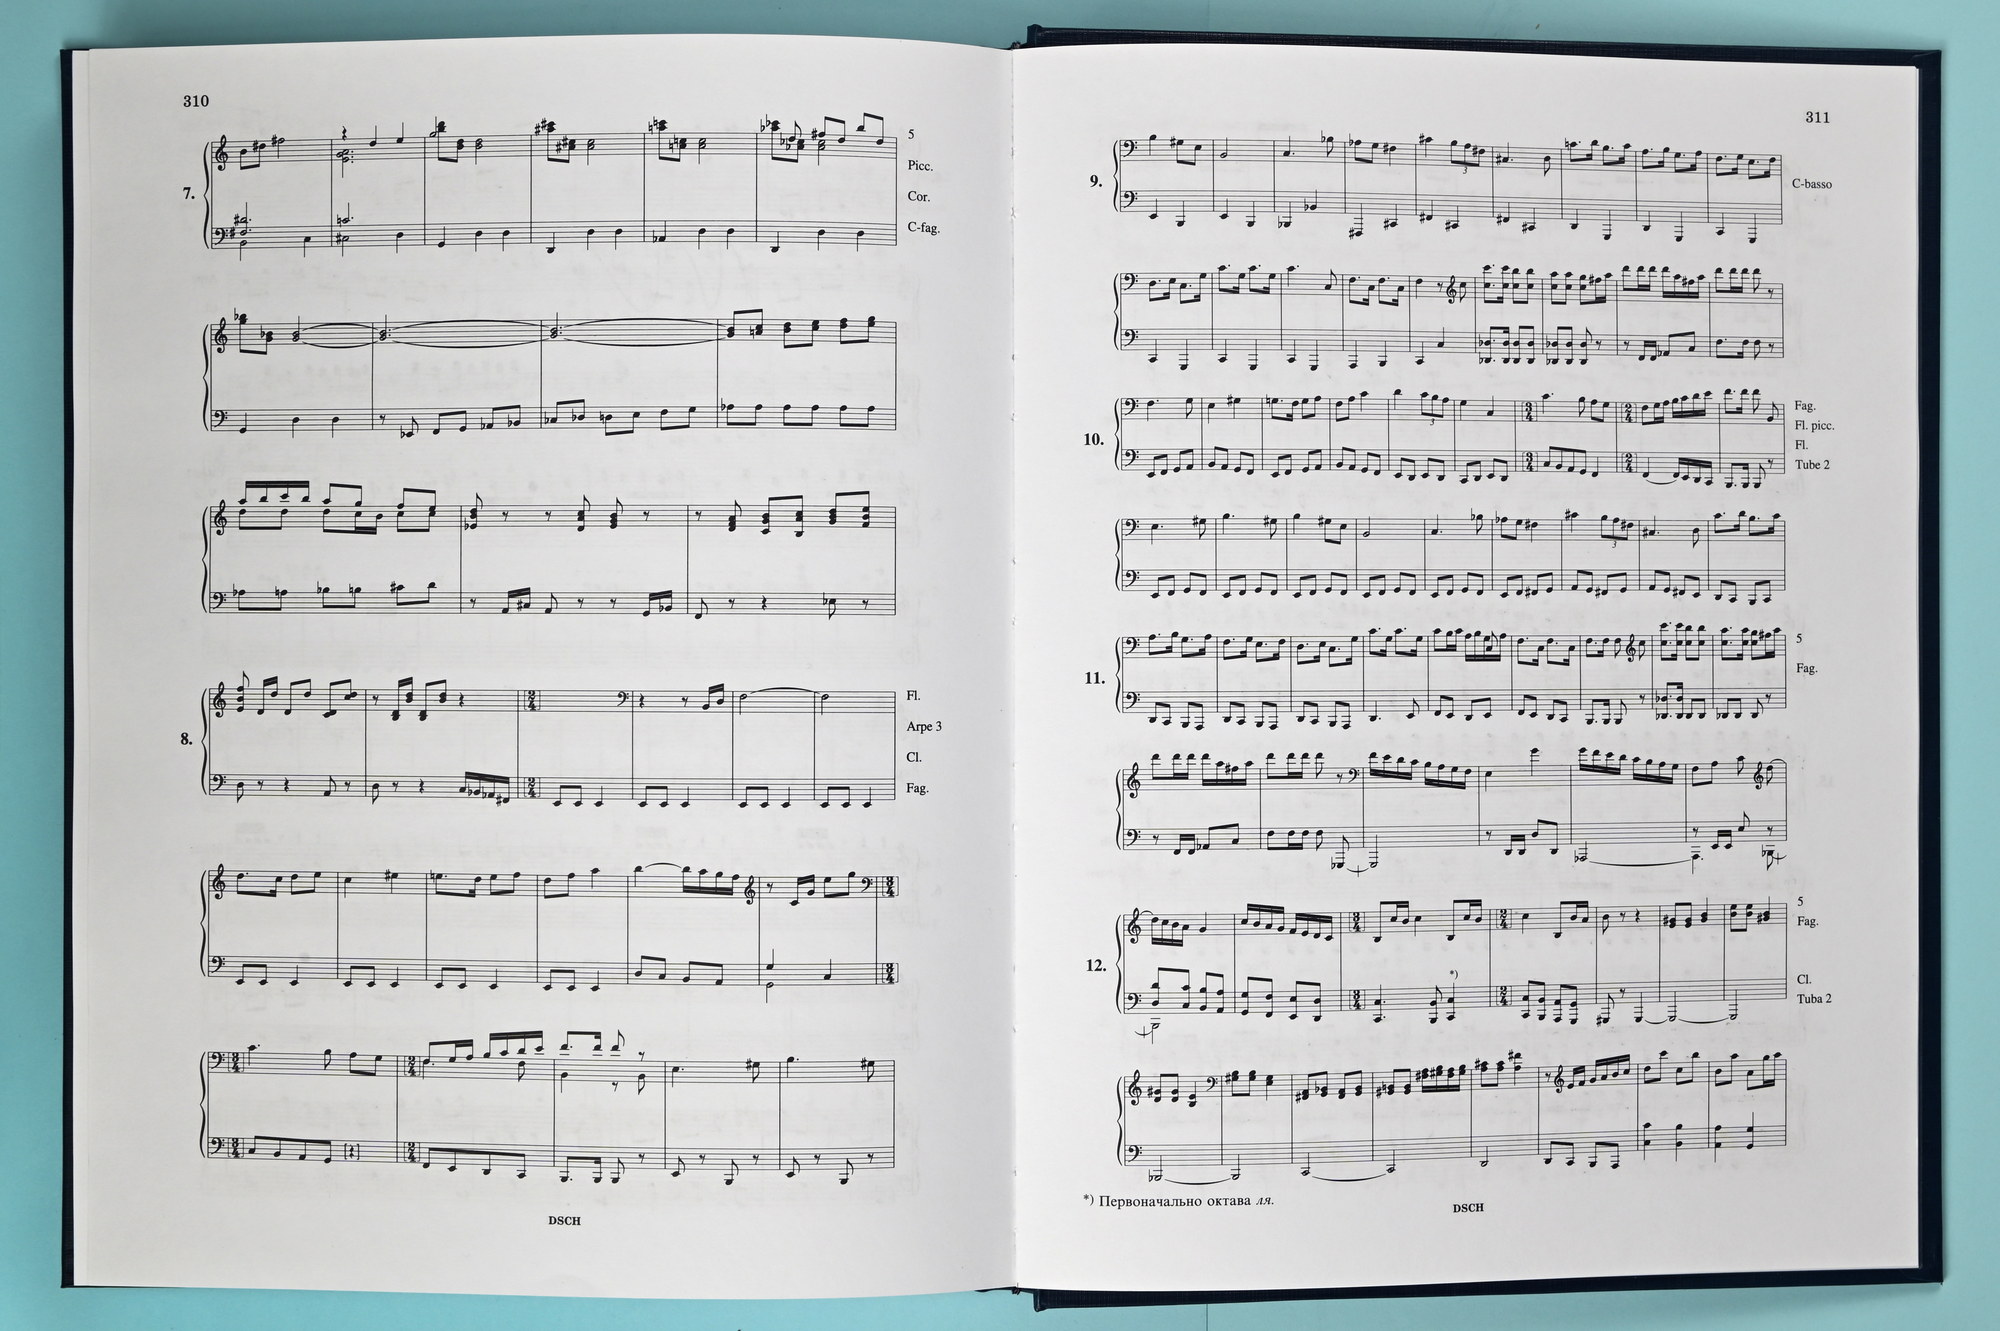 310
7.
5
Picc.
Cor.
C-fag.
8.
Fl.
Arpe 3
Cl.
Fag.
DSCH
311
9.
C-basso
10.
Fag.
Fl. picc.
Fl.
Tube 2
11.
5
Fag.
12.
5
Fag.
*)
Cl.
Tuba 2
*) Первоначально октава ля.
DSCH